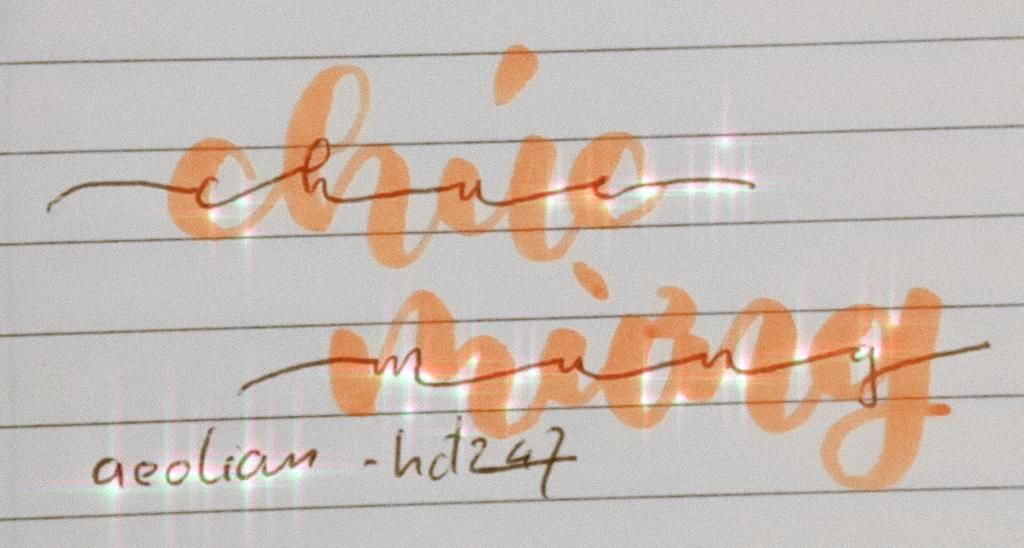 chúc
chuc
mừng
mung
aeolian -hdz47